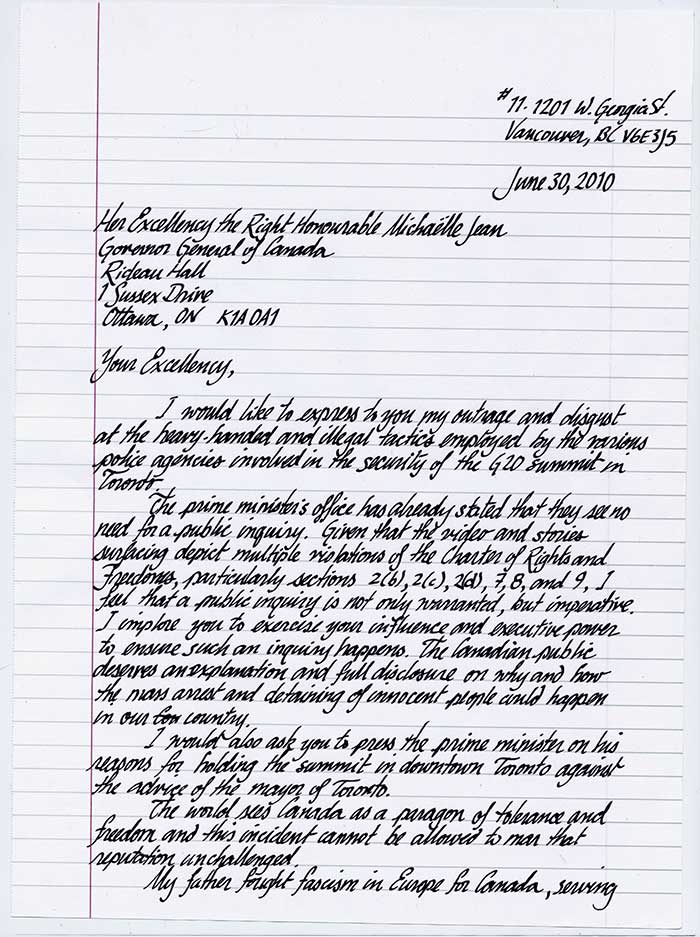 #11-1201 W. Georgia St.
Vancouver, BC V6E 3J5
June 30, 2010
Her Excellency the Right Honourable Michaëlle Jean
Governor General of Canada
Rideau Hall
1 Sussex Drive
Ottawa, ON K1A 0A1
Your Excellency,
I would like to express to you my outrage and disgust
at the heavy-handed and illegal tactics employed by the various
police agencies involved in the security of the G20 summit in
Toronto.
The prime minister's office has already stated that they see no
need for a public inquiry. Given that the video and stories
surfacing depict multiple violations of the Charter of Rights and
Freedoms, particularly sections 2(b), 2(c), 2(d), 7, 8, and 9, I
feel that a public inquiry is not only warranted, but imperative.
I implore you to exercise your influence and executive power
to ensure such an inquiry happens. The Canadian public
deserves an explanation and full disclosure on why and how
the mass arrest and detaining of innocent people could happen
in our country.
I would also ask you to press the prime minister on his
reasons for holding the summit in downtown Toronto against
the advice of the mayor of Toronto.
The world sees Canada as a paragon of tolerance and
freedom and this incident cannot be allowed to mar that
reputation unchallenged.
My father fought fascism in Europe for Canada, serving